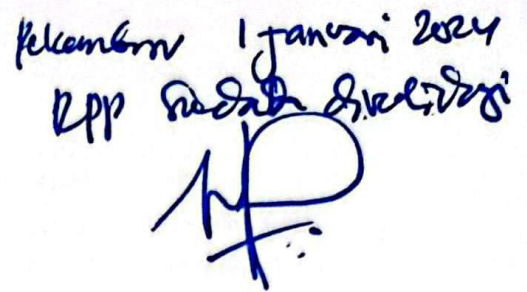 Pekanbaru 1 Januari 2024
RPP sudah divalidasi